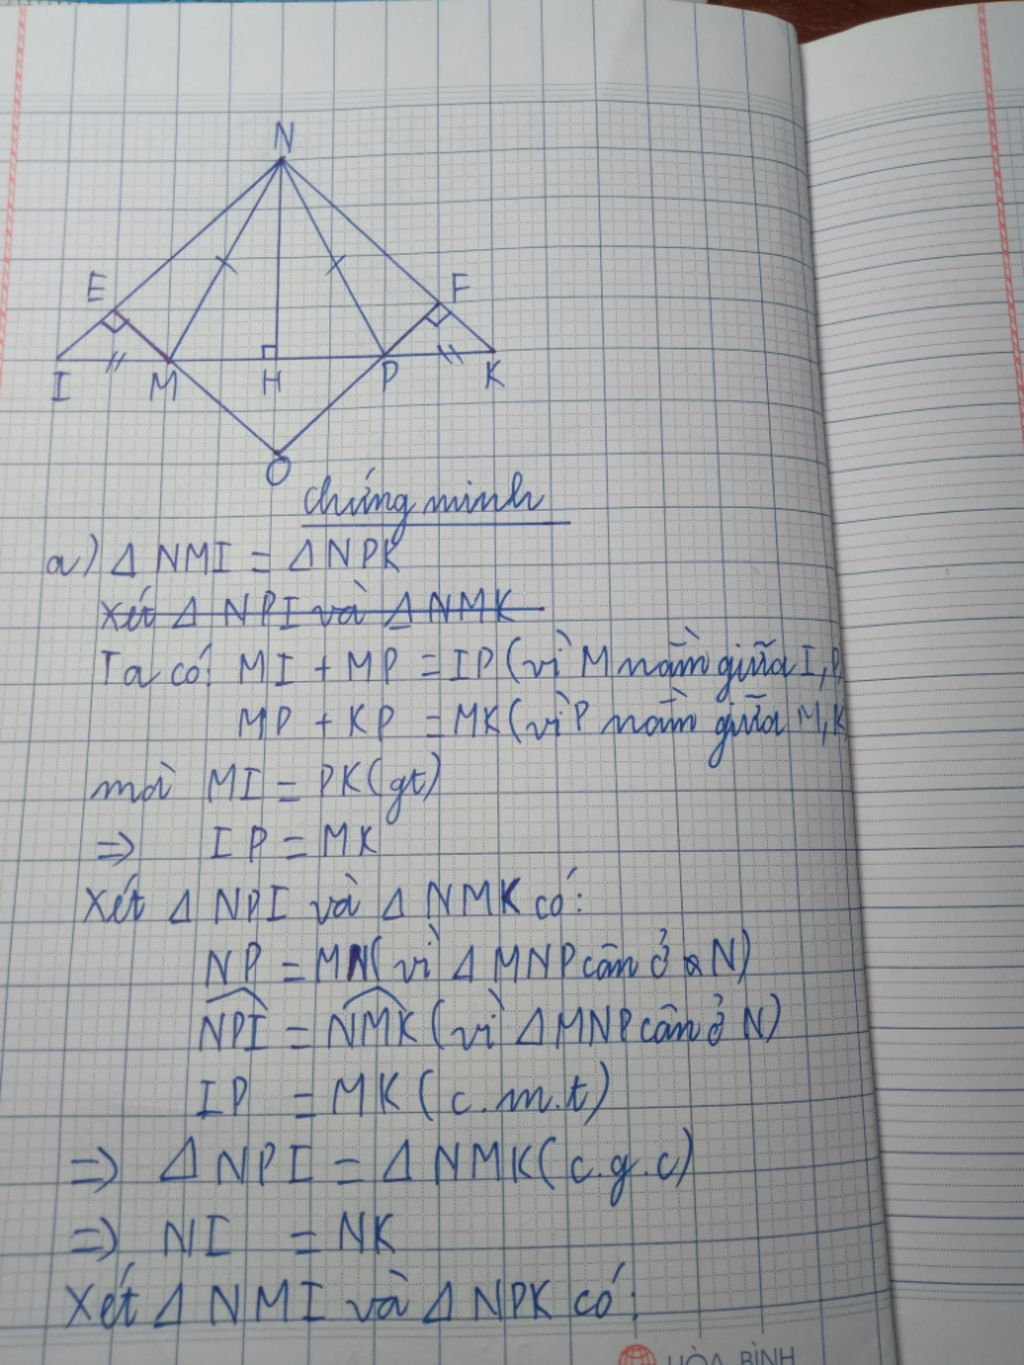 N
E
F
I
M
H
P
K
O
Chứng minh
a) Δ NMI = Δ NPK
Xét Δ NPI và Δ NMK
Ta có: MI + MP = IP (vì M nằm giữa I, P
MP + KP = MK (vì P nằm giữa M, K
mà MI = PK (gt)
⇒ IP = MK
Xét Δ NPI và Δ NMK có:
NP = MN (vì Δ MNP cân ở N)
NPI = NMK (vì Δ MNP cân ở N)
IP = MK (c.m.t)
⇒ Δ NPI = Δ NMK (c.g.c)
⇒ NI = NK
Xét Δ NMI và Δ NPK có:
HÒA BÌNH